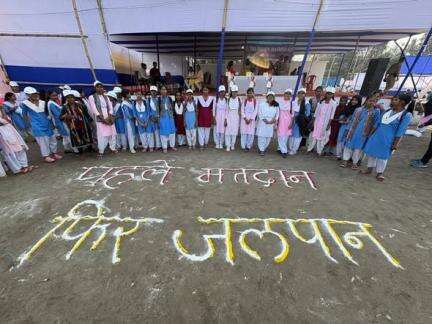 पहले मतदान
फिर जलपान